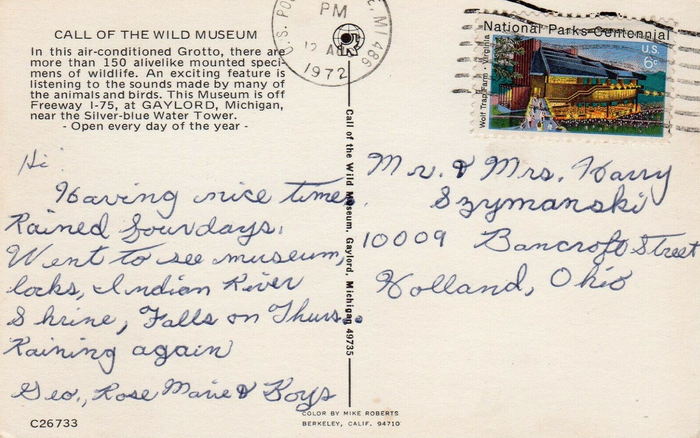 CALL OF THE WILD MUSEUM
In this air-conditioned Grotto, there are
more than 150 alivelike mounted speci-
mens of wildlife. An exciting feature is
listening to the sounds made by many of
the animals and birds. This Museum is off
Freeway I-75, at GAYLORD, Michigan,
near the Silver-blue Water Tower.
- Open every day of the year -
U.S. PO
PM
MI 486
1972
National Parks Centennial
U.S.
6c
Wolf Trap Farm · Virginia
Hi
Having nice time.
Rained four days.
Went to see museum,
locks, Indian River
Shrine, Falls on Thurs.
Raining again
Geo., Rose Marie & Boys
Call of the Wild Museum, Gaylord, Michigan 49735
Mr. & Mrs. Harry
Szymanski
10009 Bancroft Street
Holland, Ohio
C26733
COLOR BY MIKE ROBERTS
BERKELEY, CALIF. 94710